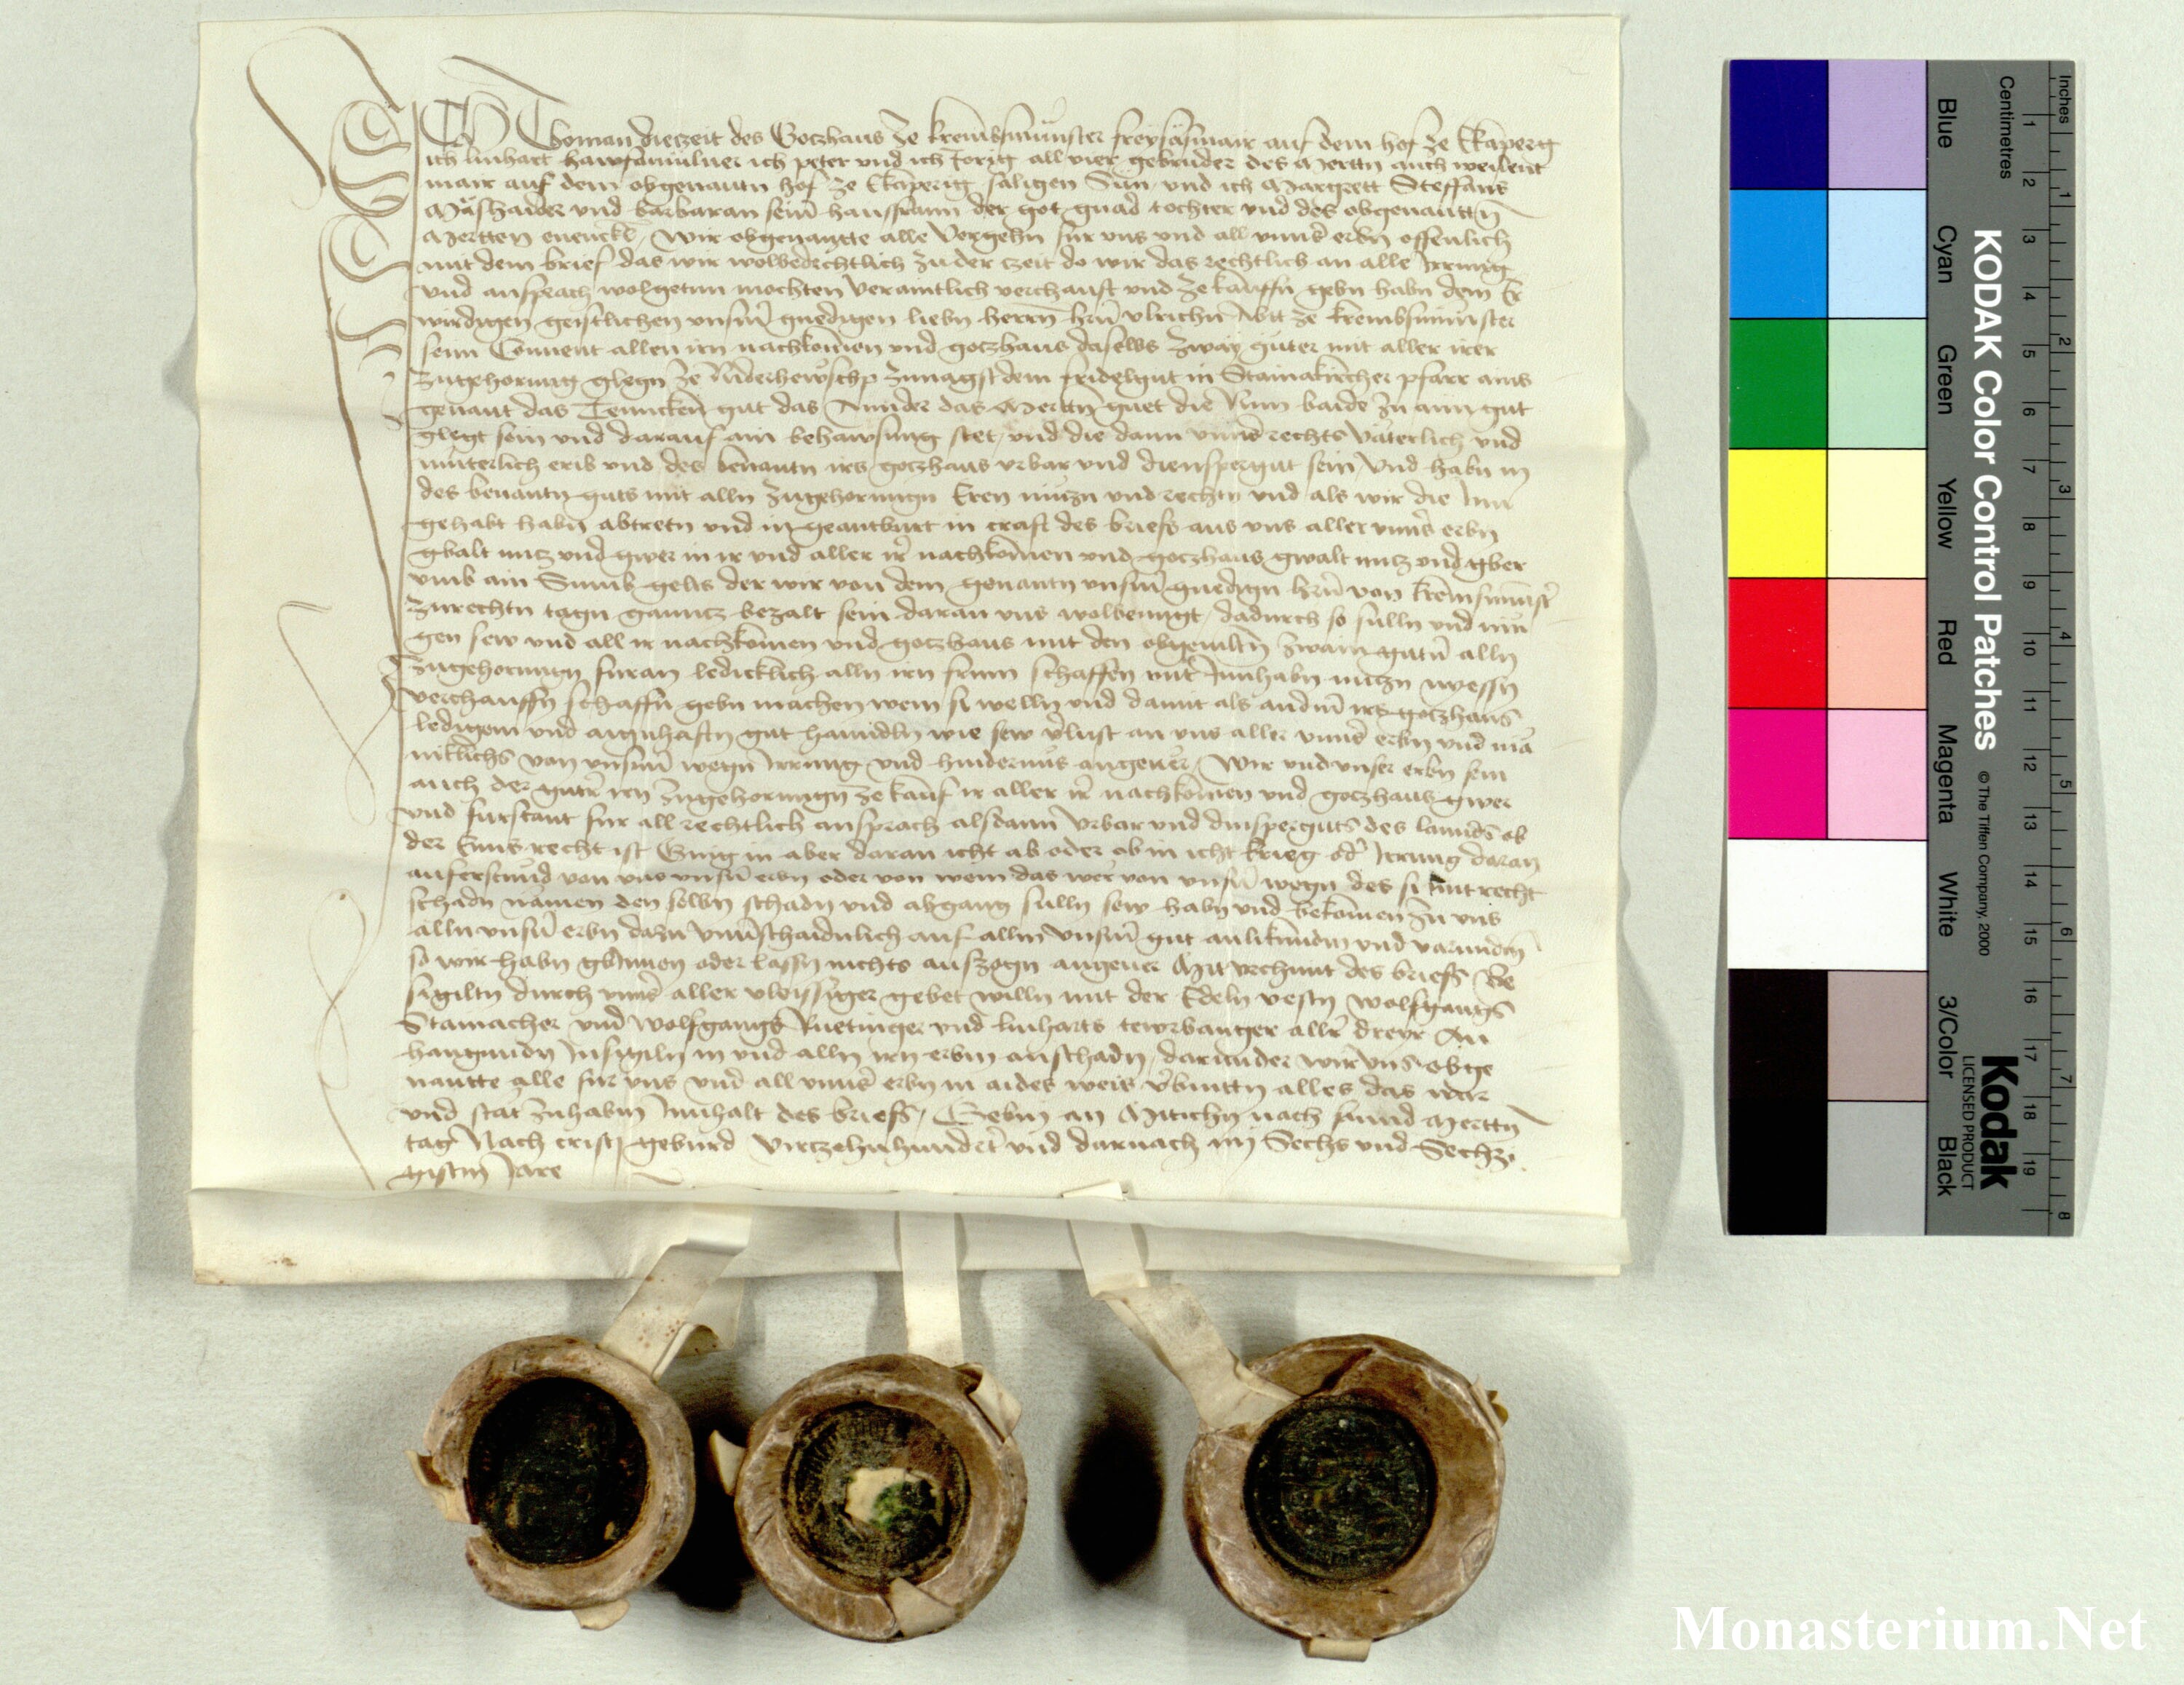 Ich Thoman dieczeit des Goczhaus ze kremsmunster freysassmair auf dem hof ze Ekāperig
ich linhart hawsamulner ich peter und ich Jorig all vier gebruder des Mertn auch weilent
mair auf dem obgenantn hof ze Ekāperig saligen Sun und ich Margrett Steffans
und barbaran seiner hausfrann der got gnad tochter und des obgenanttn
Mertten Wir obgenantte alle Vergehn fur uns und all unns erbn offenlich
mit dem brief das wir wolbedechtlich zu der czeit do wir das rechtlich an alle Irrung
und ansprach wolgetun mochten verchauft und ze kauffn gebn habn dem Er
wirdigen geistlichen unserm gnedigen liebn herrn hrn ulrichn Abbt ze kremsmunster
seim Convent allen irn nachkomen und goczhaus daselbs zway guter mit aller irer
zugehorung glegn ze zunagst dem fridelgut in Stainakircher pfarr ains
genant das gut das Annder das Merttn guet die Nun baide zu aim gut
glegt sein und darauf ain behawsung stet und die dann unns rechts vaterlich und
muterlich erib und des benantn irs goczhaus urbar und diensperigut sein Und habn in
des benantn guts mit alln zugehorungn Eren nuczn und rechtn und als wir die Inn
gehabt habn abtretn und in geantburt in craft des briefs aus uns aller unns erbn
gbalt nucz und gwer in ir und aller ir nachkomen und goczhaus gwalt nucz und gber
umb ain Summ gelts der wir von dem genantn unserm gnedign hrn von kremsmunst
zu rechtn tagn ganncz bezalt sein daran uns wolbenugt dadurch so sulln und mu
gen sew und all ir nachkomen und goczhaus mit den obgemeltn zwain gutn alln
zugehorungn furan ledicklich alln irn frum schaffen mit Innhabn nuczn niessn
verchauffn schaffn gebn machen wem si welln und damit als andern irs goczhaus
ledigem und aignhaftn gut hanndeln wie sew verlust an uns aller unns erbn und mā
niklichs von unserm wegn Irrung und hindernus angever Wir und unser erbn sein
auch der gutr irn zugehorungn ze kauf ir aller ir nachkomen und goczhaus gwer
und furstant fur all rechtlich ansprach alsdann urbar und dinsperguts des lannds ob
der Enns recht ist Gieng in aber daran icht ab oder ob in icht krieg od Irrung daran
auferstund von uns unsern erbn oder von wem das wer von unsern wegn des si mit recht
schadn namen den selbn schadn und abgang sulln sew habn und bekomen zu uns
alln unsern erbn dazu unverschaidnlich auf allm unserm gut anlikundm und varundm
so wir habn gbinnen oder lassn nichts auszogn angever Mit urchunt des briefs Be
sigiltn durch unns aller vleissiger gebet willn mit der Edeln vestn wolfgangs
Stainacher und wolfgangs Ruetinger und linharts allr dreyr An
hangundn Insigiln in und alln irn erbm anschadn darunder wir uns obge
nantte alle fur uns und all unns erbn in aides weis verbinttn alles das war
und stat zuhabm Innhalt des briefs Gebm an Mitichn nach sannd Merttn
tag Nach cristi geburd Vierczehnhundert und darnach im Sechs und Sechzi
gistm Jare
KODAK Color Control Patches © The Tiffen Company, 2000
Kodak
LICENSED PRODUCT
Blue Cyan Green Yellow Red Magenta White 3/Color Black
Centimetres
1 2 3 4 5 6 7 8 9 10 11 12 13 14 15 16 17 18 19
Inches
1 2 3 4 5 6 7 8
Monasterium.Net